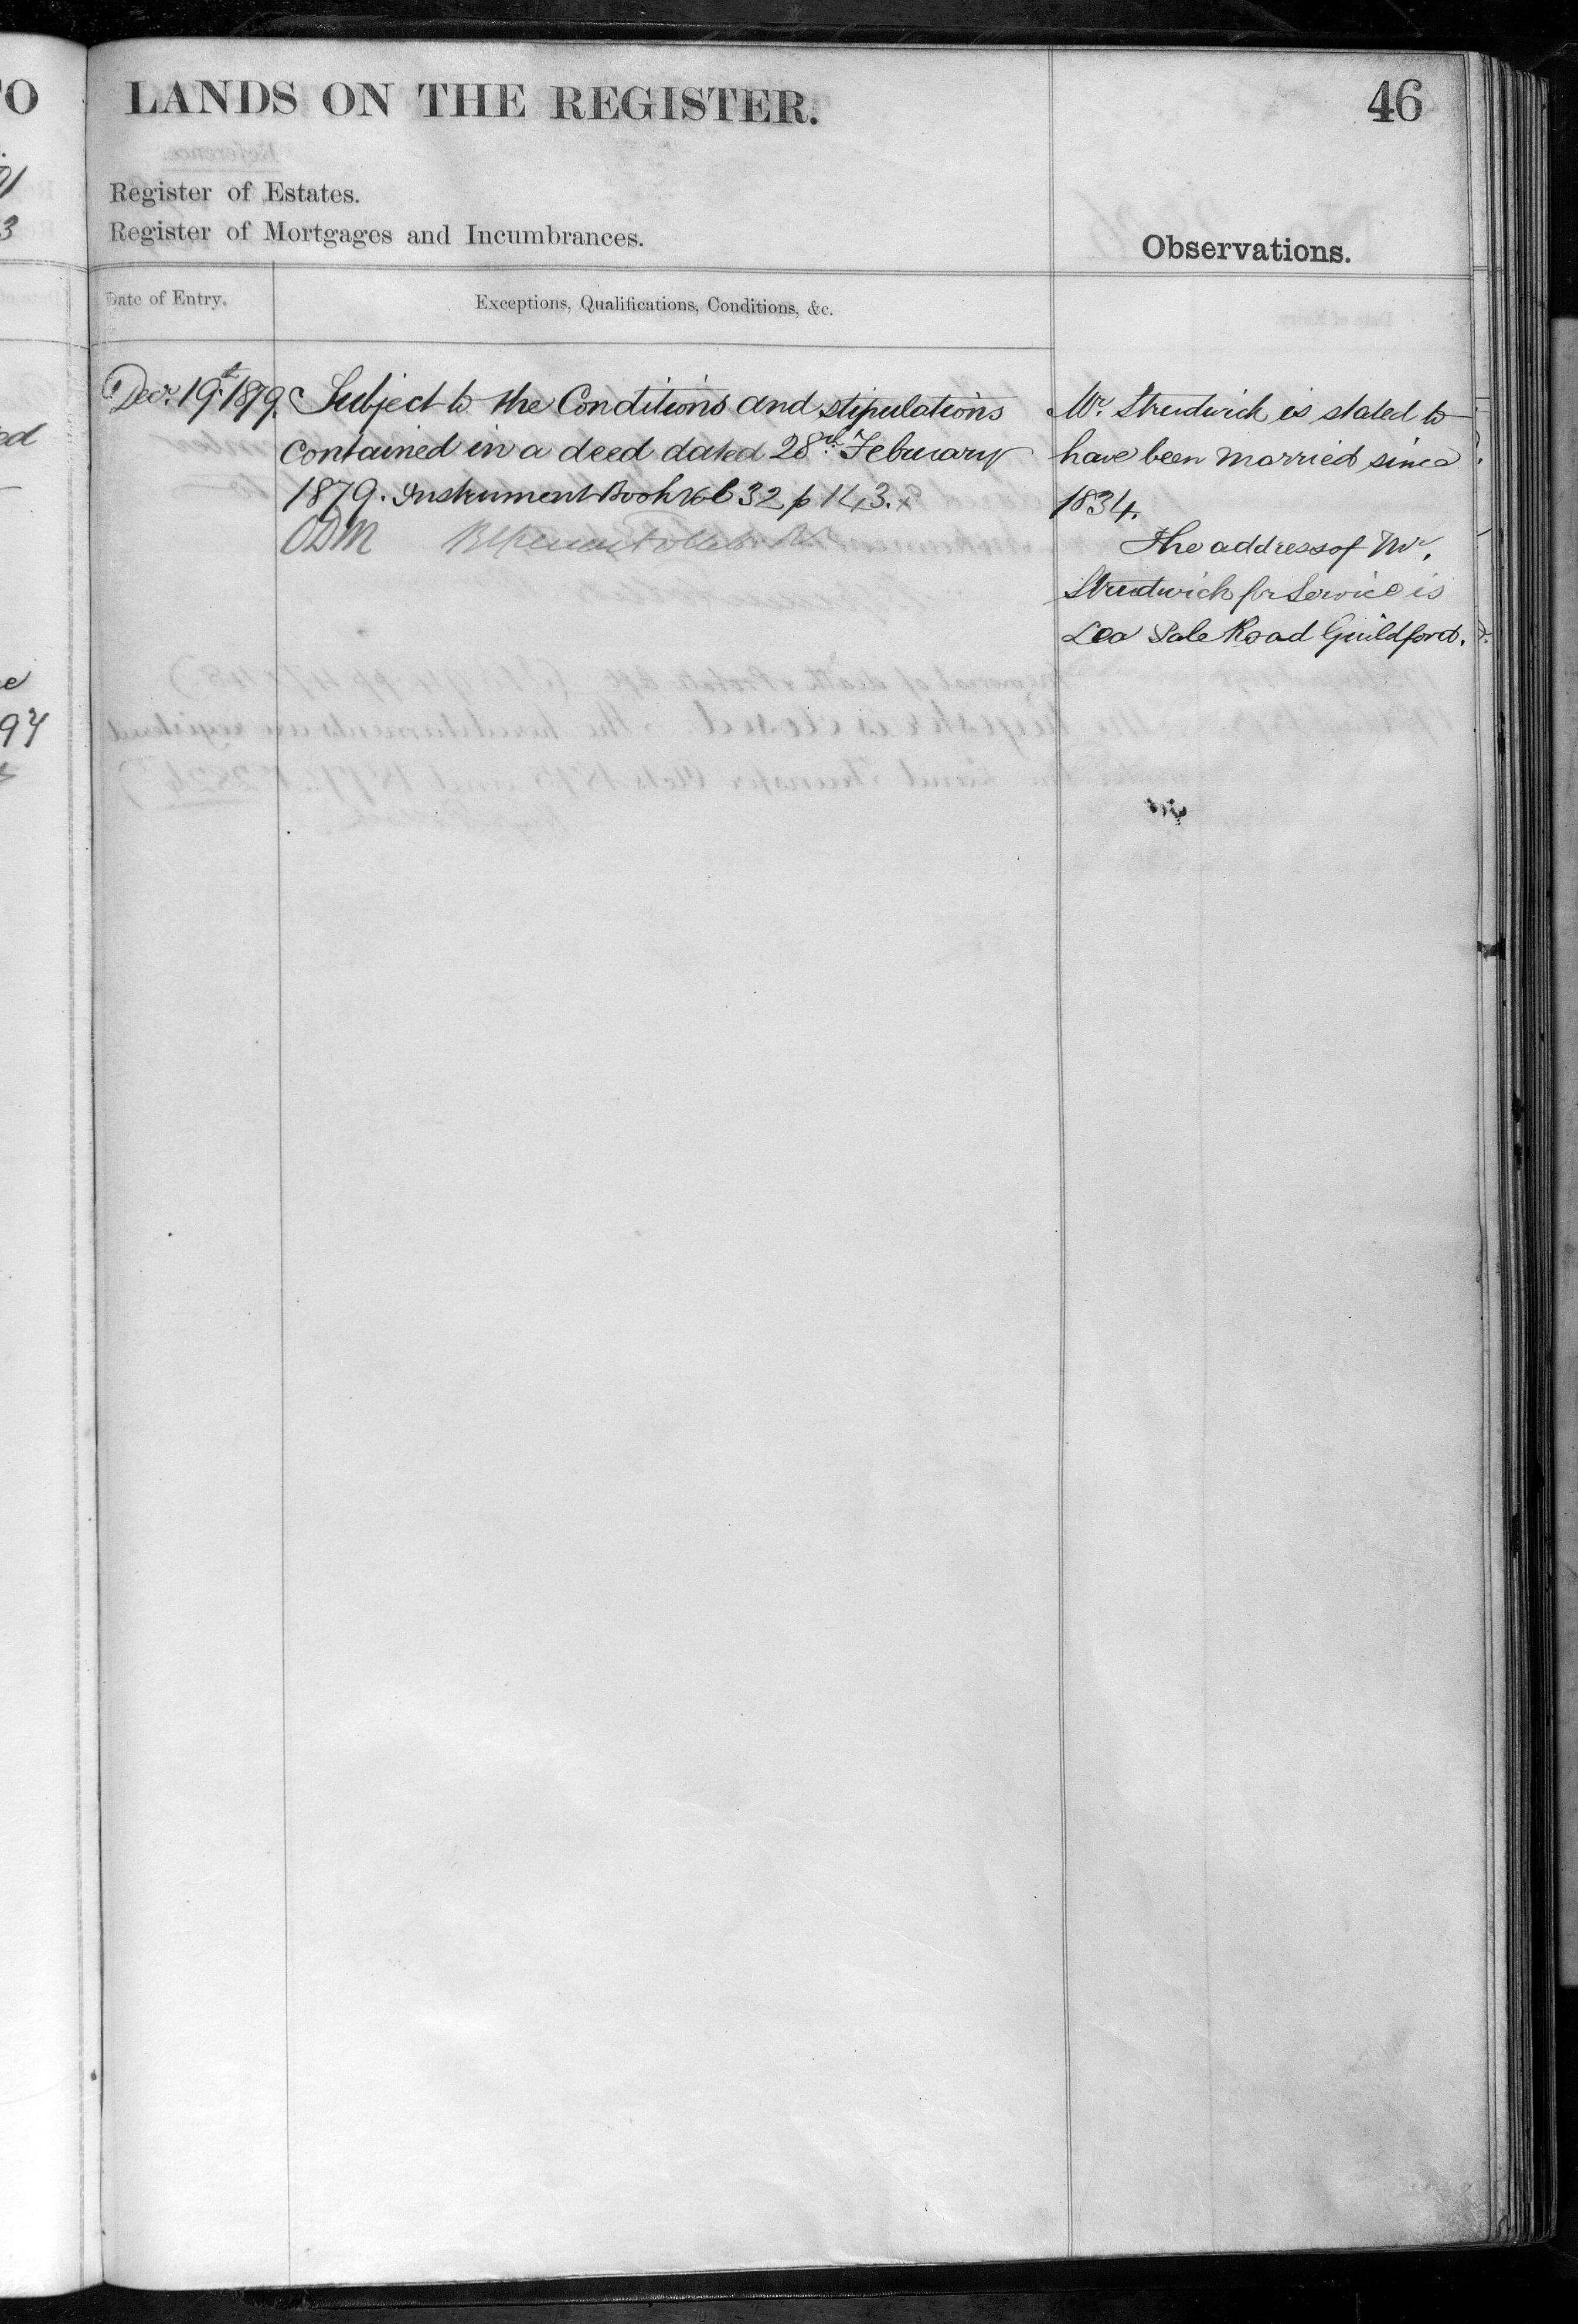 TO
LANDS ON THE REGISTER.
46
Register of Estates.
Register of Mortgages and Incumbrances.
Observations.
Date of Entry.
Exceptions, Qualifications, Conditions, &c.
Decr. 19th 1879.
Subject to the Conditions and stipulations
contained in a deed dated 28th February
1879. Instrument Book Vol 32 p 143. x
ODM
Mr. Strudwick is stated to
have been married since
1834.
The address of Mr.
Strudwick for Service is
Lea Pale Road Guildford.